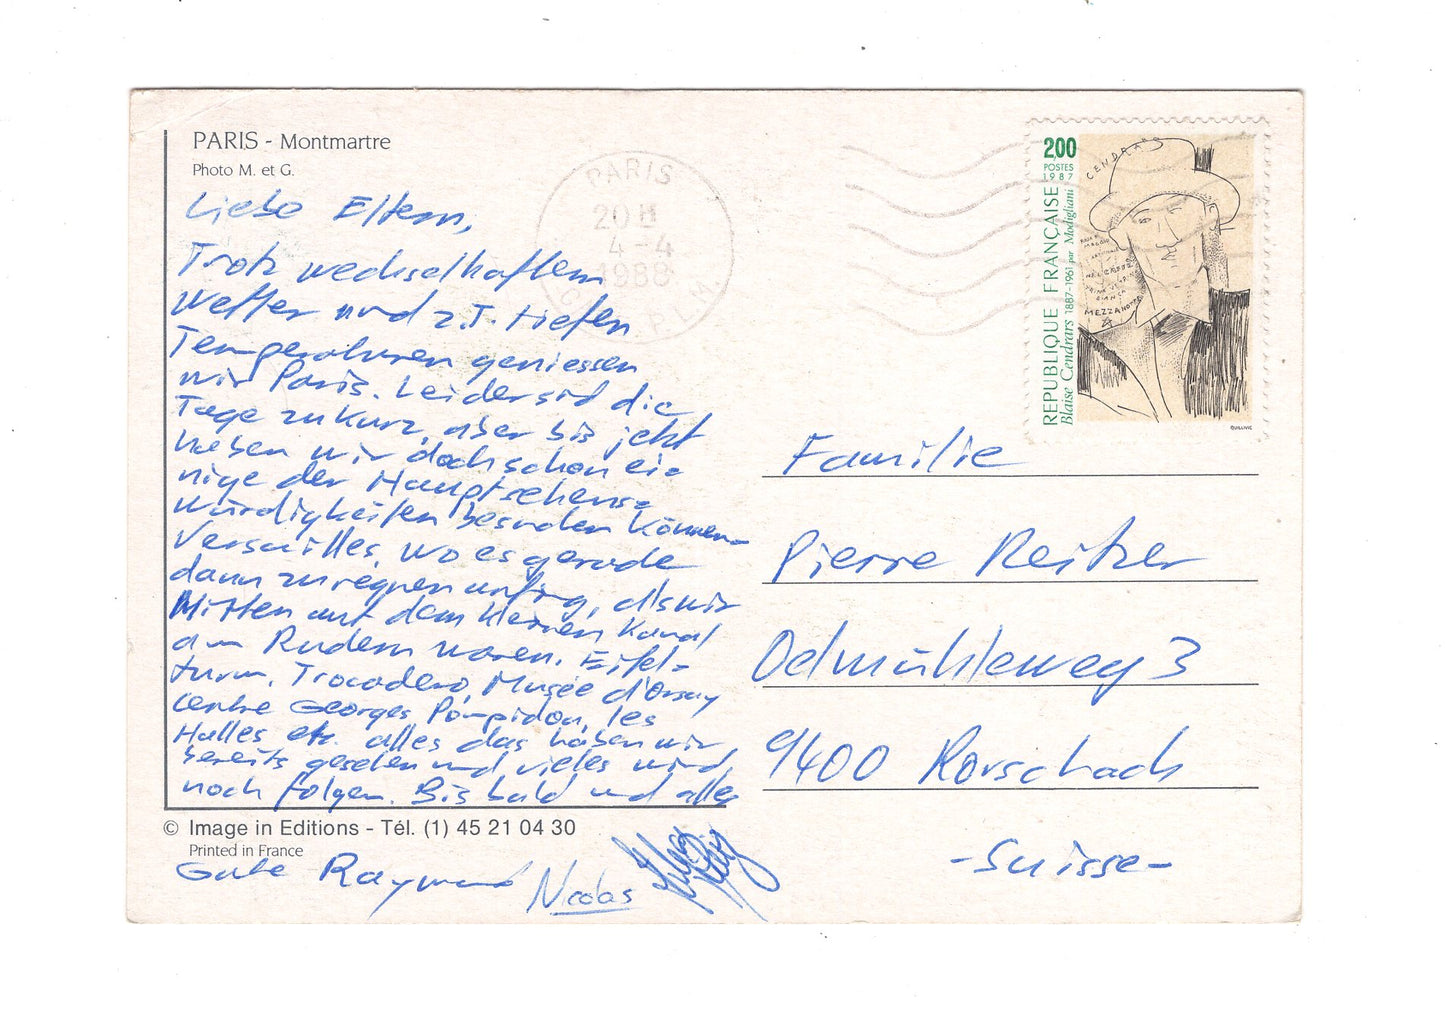 PARIS - Montmartre
Photo M. et G.
Liebe Eltern,
Trotz wechselhaftem
Wetter und z.T. tiefen
Temperaturen geniessen
wir Paris. Leider sind die
Tage zu kurz, aber bis jetzt
haben wir doch schon ei=
nige der Hauptsehens=
würdigkeiten besuchen können
Versailles, wo es gerade
dann zu regnen anfing, als wir
Mitten auf dem kleinen Kanal
am Rudern waren. Eifel=
turm, Trocadero, Musée d'Orsay
Centre Georges Pompidou, les
Halles etc. alles das haben wir
bereits gesehen und vieles wird
noch folgen. Bis bald und alles
© Image in Editions - Tél. (1) 45 21 04 30
Printed in France
Gute Raymund Nicolas
PARIS
20 H
4-4
1988
P.L.M.
200
POSTES
1987
REPUBLIQUE FRANÇAISE
Blaise Cendrars 1887-1961 par Modigliani
CENDRARS
MEZZANOTTE
QUILLIVIC
Familie
Pierre Reitzer
Oelmühleweg 3
9400 Rorschach
-Suisse-